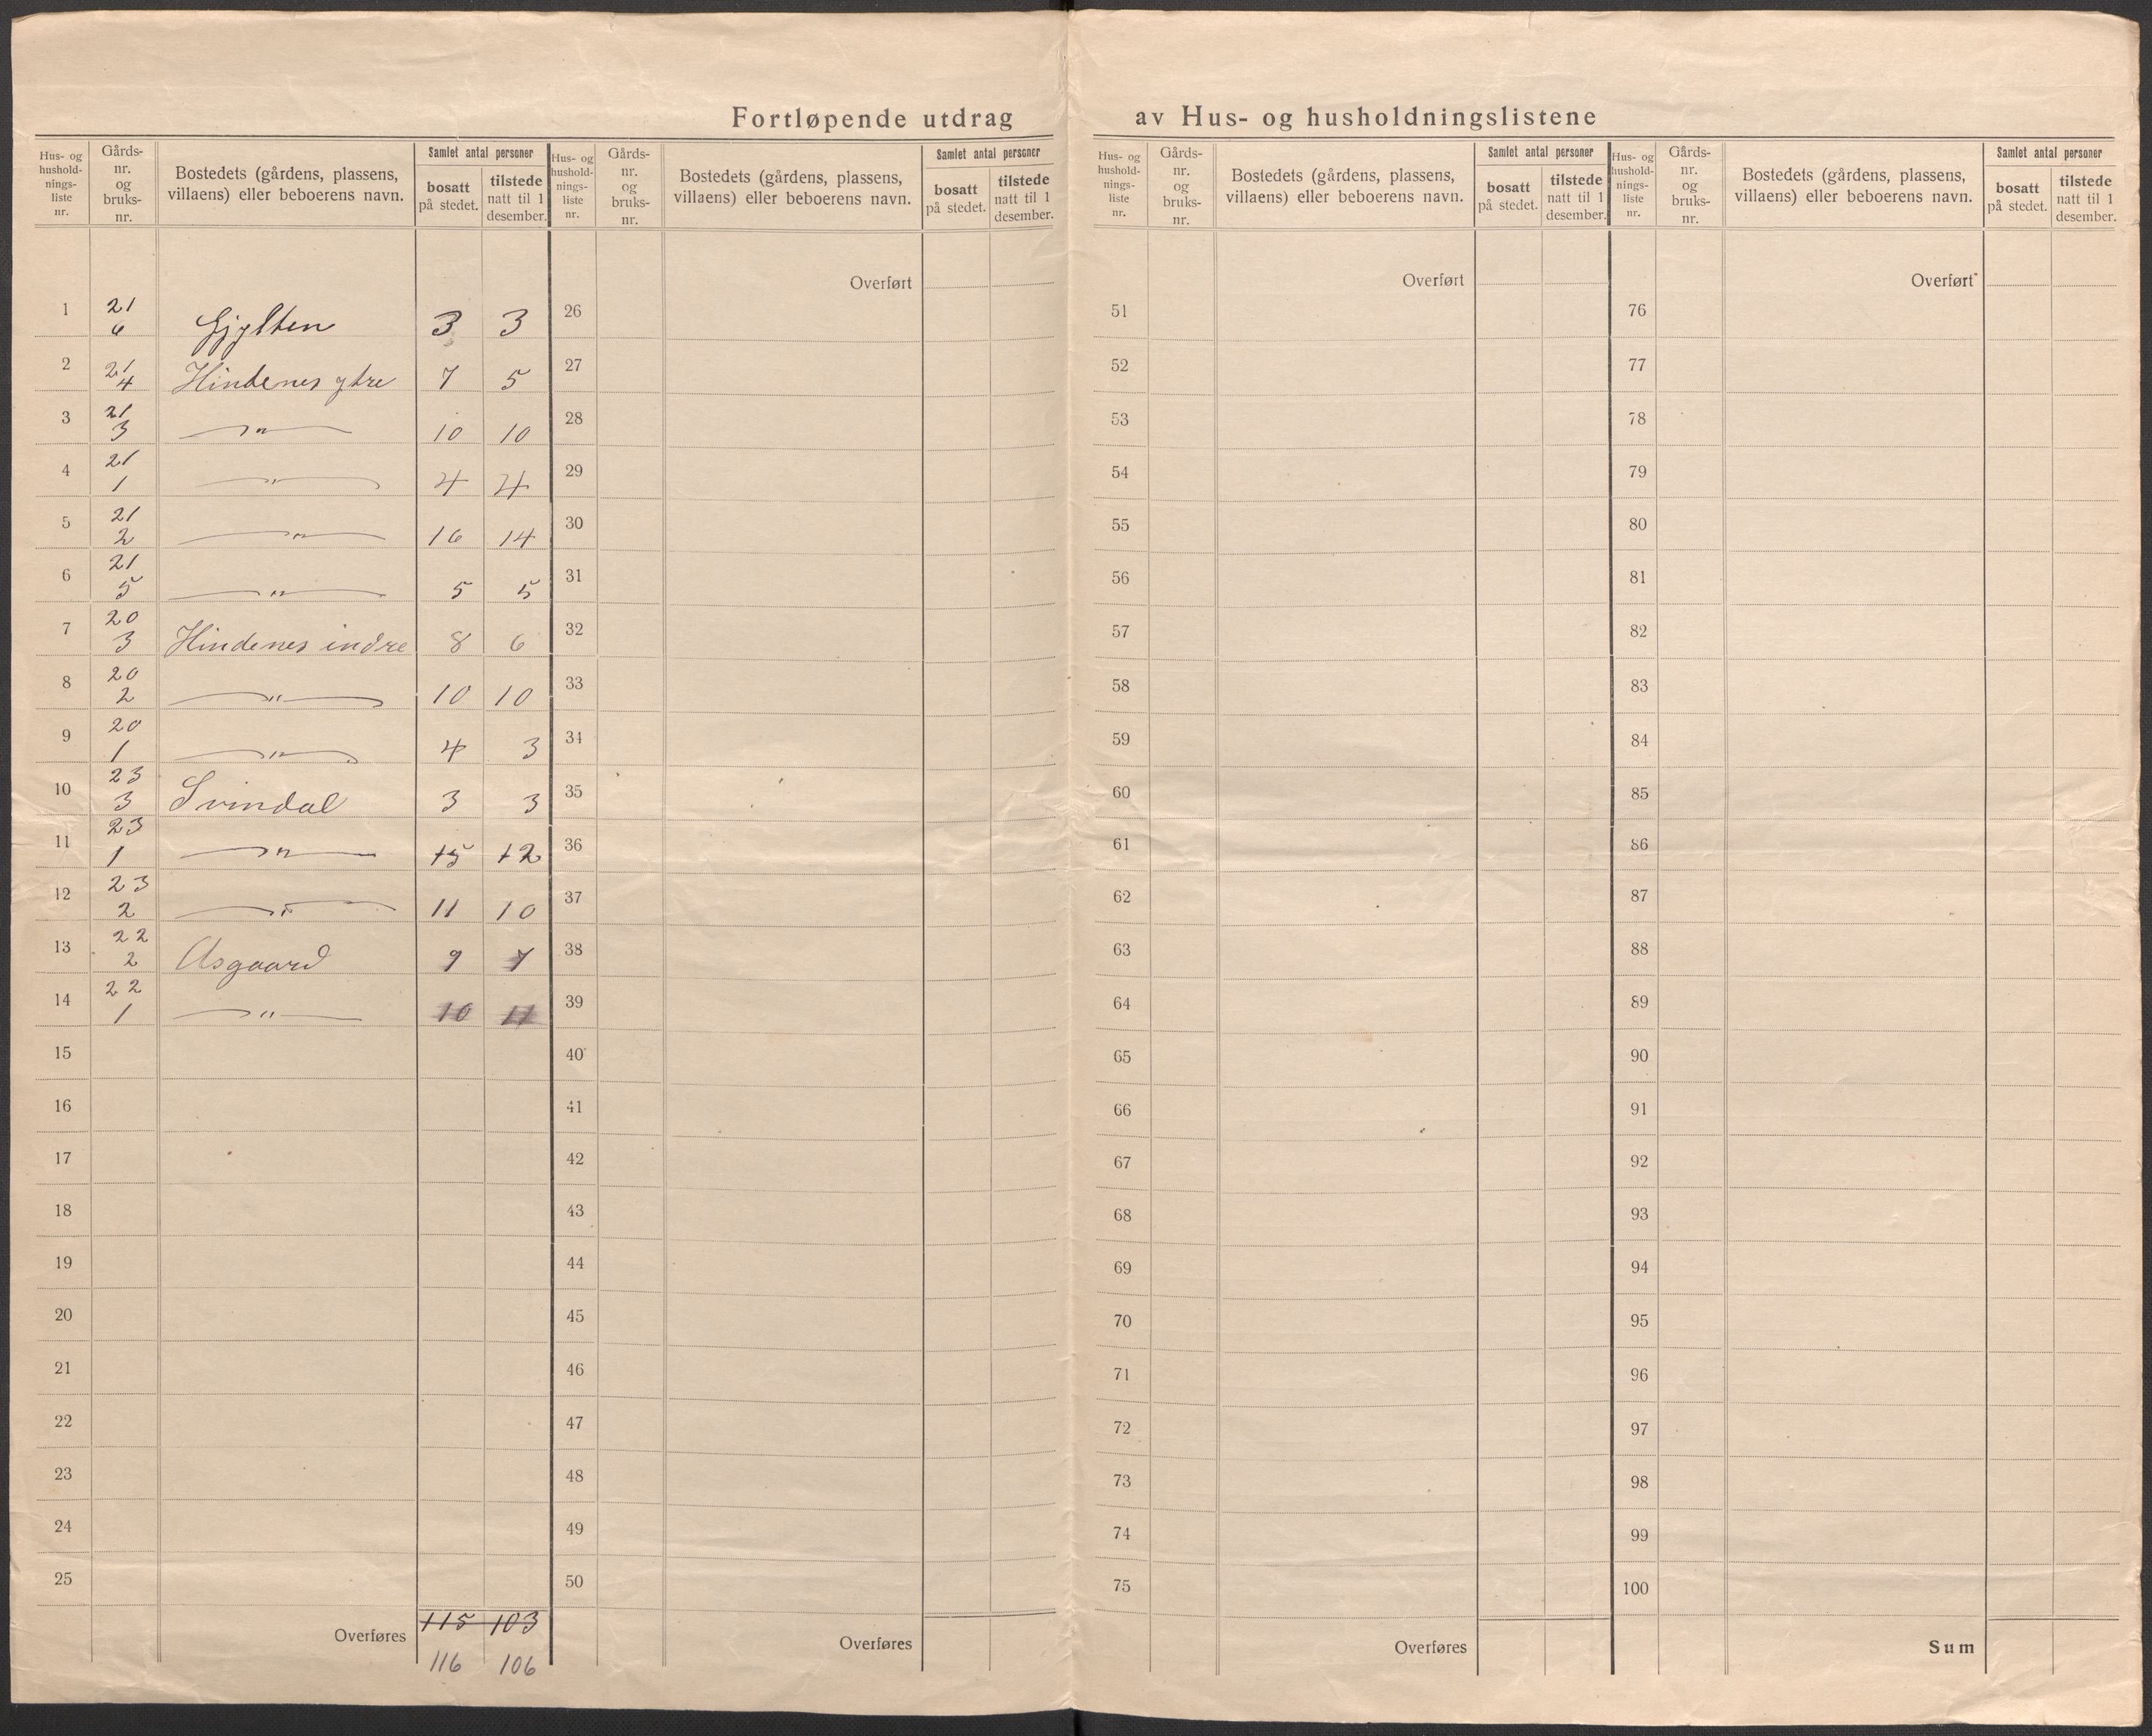 Fortløpende utdrag av Hus- og husholdningslistene
Hus- og hushold-nings-liste nr. | Gårds-nr. og bruks-nr. | Bostedets (gårdens, plassens, villaens) eller beboerens navn. | Samlet antal personer | bosatt på stedet. | tilstede natt til 1 desember.
1 | 21 6 | Gjylten | 3 | 3
2 | 21 4 | Hindenes ytre | 7 | 5
3 | 21 3 | —"— | 10 | 10
4 | 21 1 | —"— | 4 | 4
5 | 21 2 | —"— | 16 | 14
6 | 21 5 | —"— | 5 | 5
7 | 20 3 | Hindenes indre | 8 | 6
8 | 20 2 | —"— | 10 | 10
9 | 20 1 | —"— | 4 | 3
10 | 23 3 | Svindal | 3 | 3
11 | 23 1 | —"— | 15 | 12
12 | 23 2 | —"— | 11 | 10
13 | 22 2 | Asgaard | 9 | 7
14 | 22 1 | —"— | 10 | 11
15
16
17
18
19
20
21
22
23
24
25
Overføres | 115 | 103
116 | 106
Hus- og hushold-nings-liste nr. | Gårds-nr. og bruks-nr. | Bostedets (gårdens, plassens, villaens) eller beboerens navn. | Samlet antal personer | bosatt på stedet. | tilstede natt til 1 desember.
Overført
26
27
28
29
30
31
32
33
34
35
36
37
38
39
40
41
42
43
44
45
46
47
48
49
50
Overføres
Hus- og hushold-nings-liste nr. | Gårds-nr. og bruks-nr. | Bostedets (gårdens, plassens, villaens) eller beboerens navn. | Samlet antal personer | bosatt på stedet. | tilstede natt til 1 desember.
Overført
51
52
53
54
55
56
57
58
59
60
61
62
63
64
65
66
67
68
69
70
71
72
73
74
75
Overføres
Hus- og hushold-nings-liste nr. | Gårds-nr. og bruks-nr. | Bostedets (gårdens, plassens, villaens) eller beboerens navn. | Samlet antal personer | bosatt på stedet. | tilstede natt til 1 desember.
Overført
76
77
78
79
80
81
82
83
84
85
86
87
88
89
90
91
92
93
94
95
96
97
98
99
100
Sum